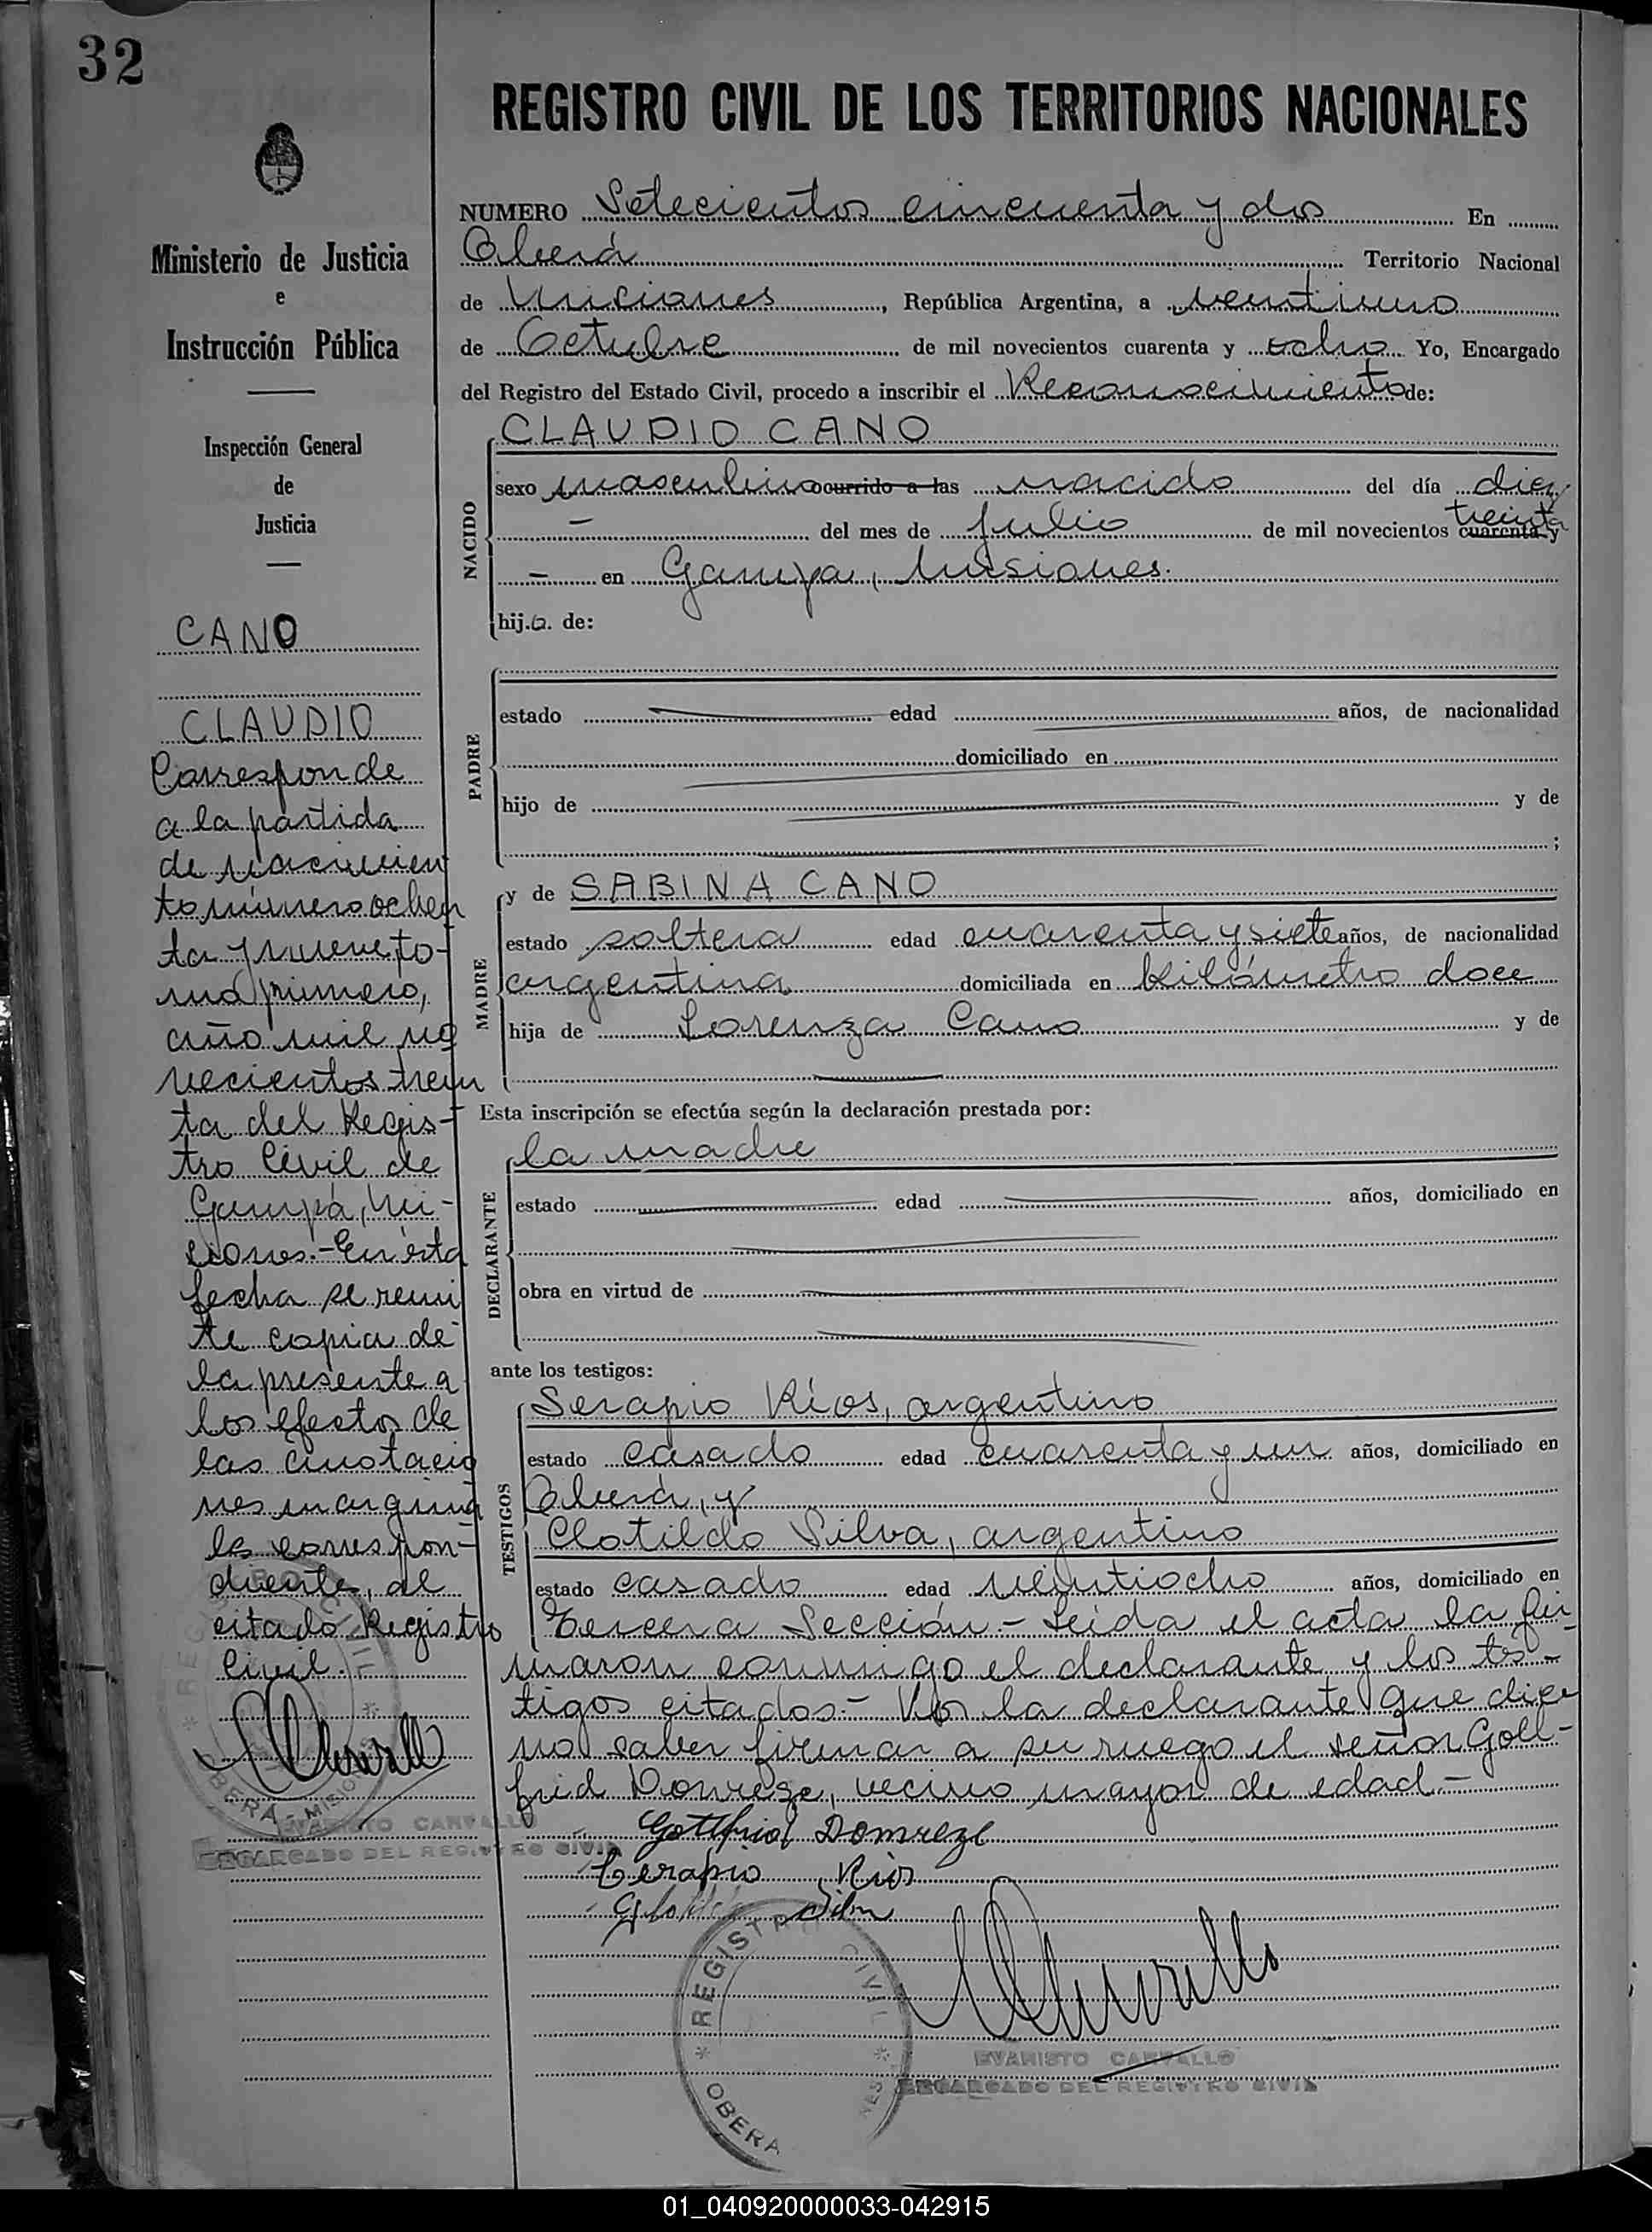 32
REGISTRO CIVIL DE LOS TERRITORIOS NACIONALES
Ministerio de Justicia
e
Instrucción Pública
Inspección General
de
Justicia
CANO
CLAUDIO
Corresponde
a la partida
de nacimien
to número ochen
ta y nueve, to-
mo primero,
año mil no
vecientos trein
ta del Regis-
tro Civil de
Gampá, Mi-
siones.- En esta
fecha se remi
te copia de
la presente a
los efectos de
las anotacio
nes margina
les correspon-
dientes, al
citado Registro
Civil.
EVARISTO CARVALLO
ENCARGADO DEL REGISTRO CIVIL
NUMERO Setecientos cincuenta y dos En
Oberá Territorio Nacional
de Misiones, República Argentina, a veintiuno
de Octubre de mil novecientos cuarenta y ocho Yo, Encargado
del Registro del Estado Civil, procedo a inscribir el Reconocimiento de:
NACIDO
CLAUDIO CANO
sexo masculino ocurrido a las nacido del día diez
- del mes de julio de mil novecientos cuarenta y treinta
- en Gampá, Misiones.
hijo. de:
PADRE
estado edad años, de nacionalidad
domiciliado en
hijo de y de
;
MADRE
y de SABINA CANO
estado soltera edad cuarenta y siete años, de nacionalidad
argentina domiciliada en Kilómetro doce
hija de Lorenza Cano y de
Esta inscripción se efectúa según la declaración prestada por:
DECLARANTE
la madre
estado edad años, domiciliado en
obra en virtud de
ante los testigos:
TESTIGOS
Serapio Ríos, argentino
estado casado edad cuarenta y un años, domiciliado en
Oberá, y
Clotildo Silva, argentino
estado casado edad veintiocho años, domiciliado en
Tercera Sección.- Leída el acta la fir
maron conmigo el declarante y los tes-
tigos citados.- Por la declarante que dice
no saber firmar a su ruego el señor Gott-
frid Domrese, vecino mayor de edad.-
Gottfried Domreze
Serapio Rios
Silva
REGISTRO CIVIL
OBERA
EVARISTO CARVALLO
ENCARGADO DEL REGISTRO CIVIL
01_040920000033-042915